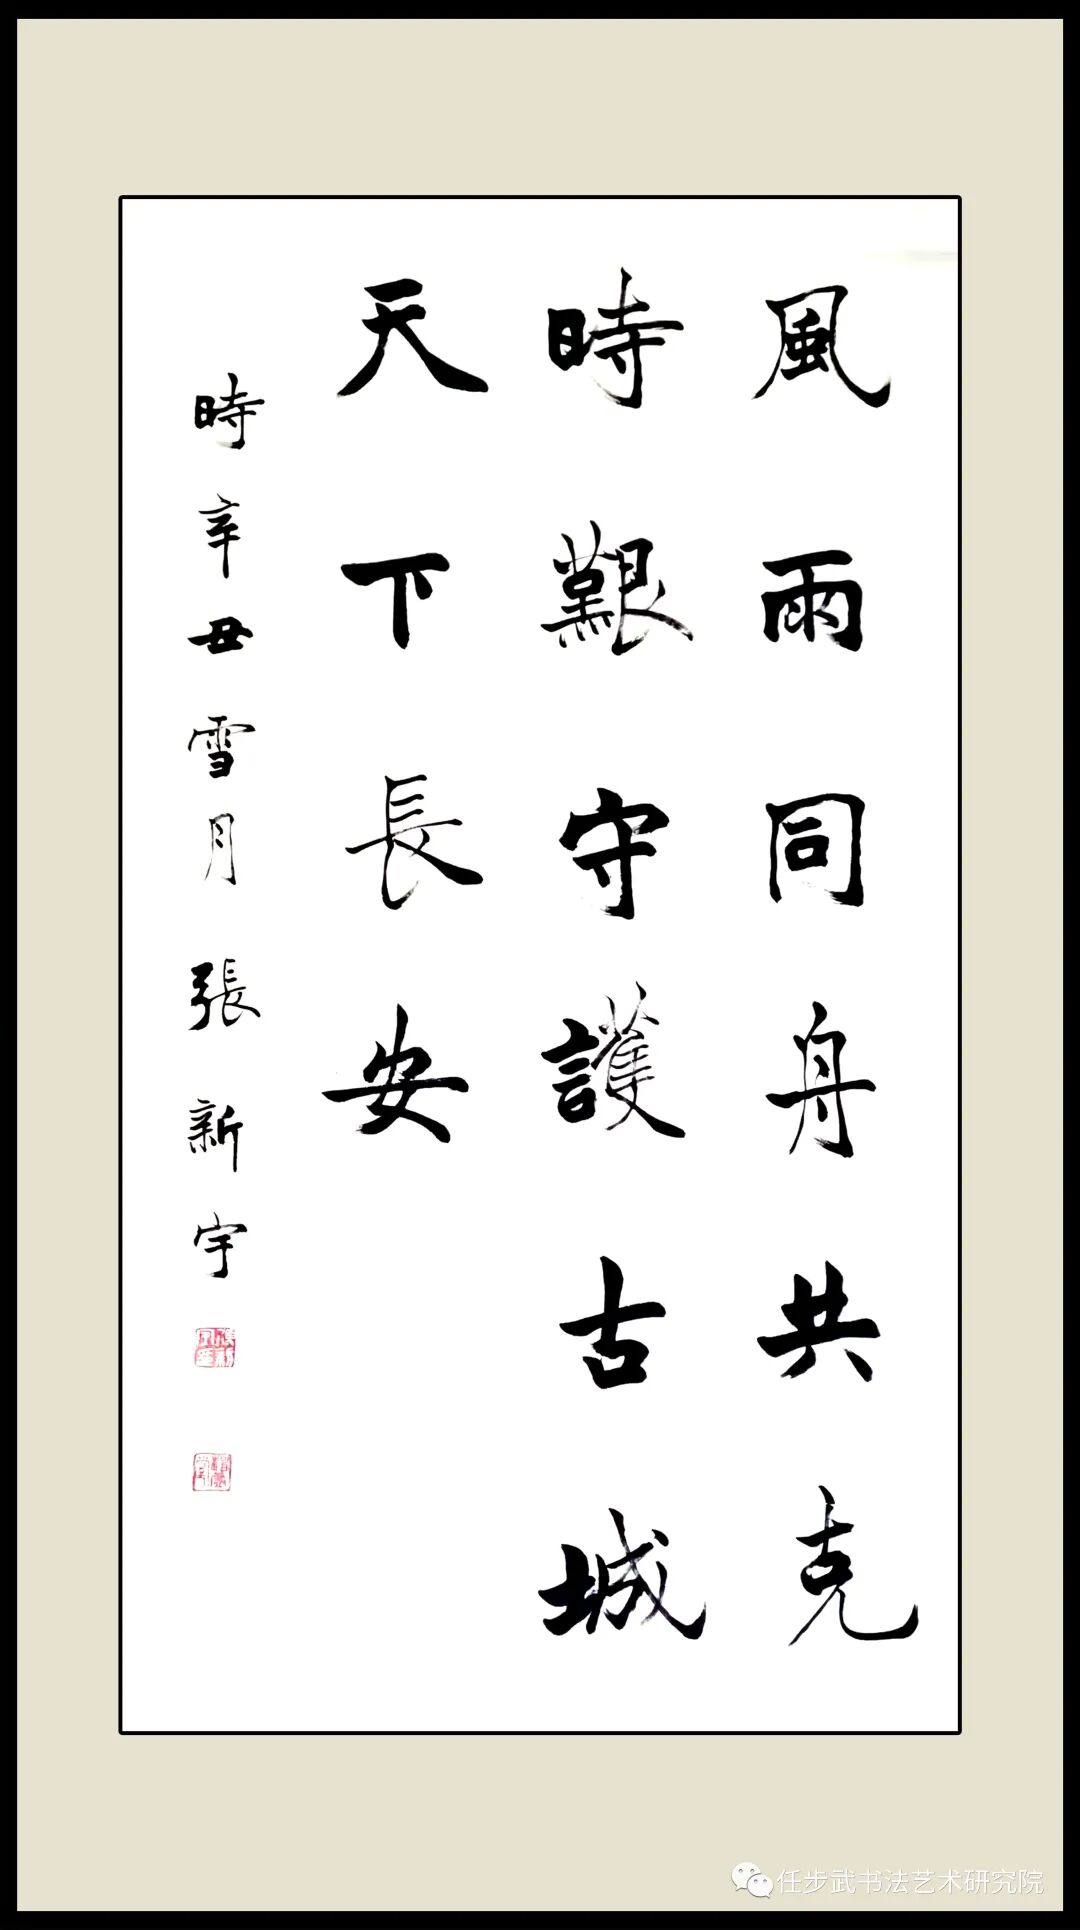 風雨同舟共克
時艱守護古城
天下長安
時辛丑雪月張新宇
任步武书法艺术研究院